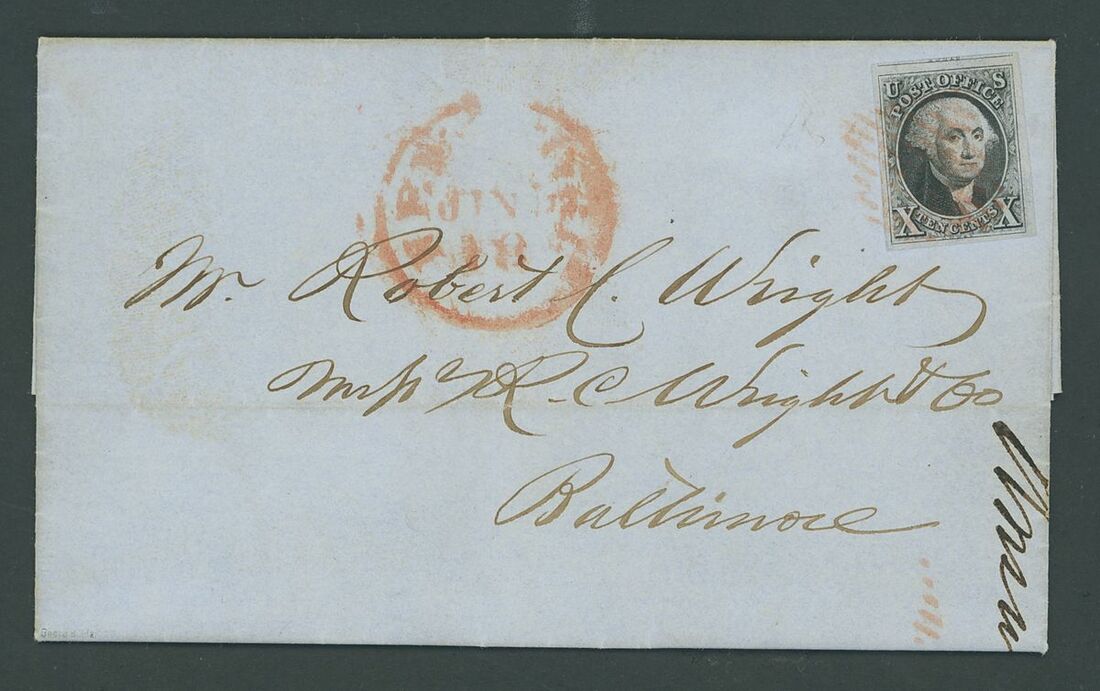 U S
POST OFFICE
X TEN CENTS X
JUN
18
Mr. Robert C. Wright
Messrs R. C. Wright & Co
Baltimore